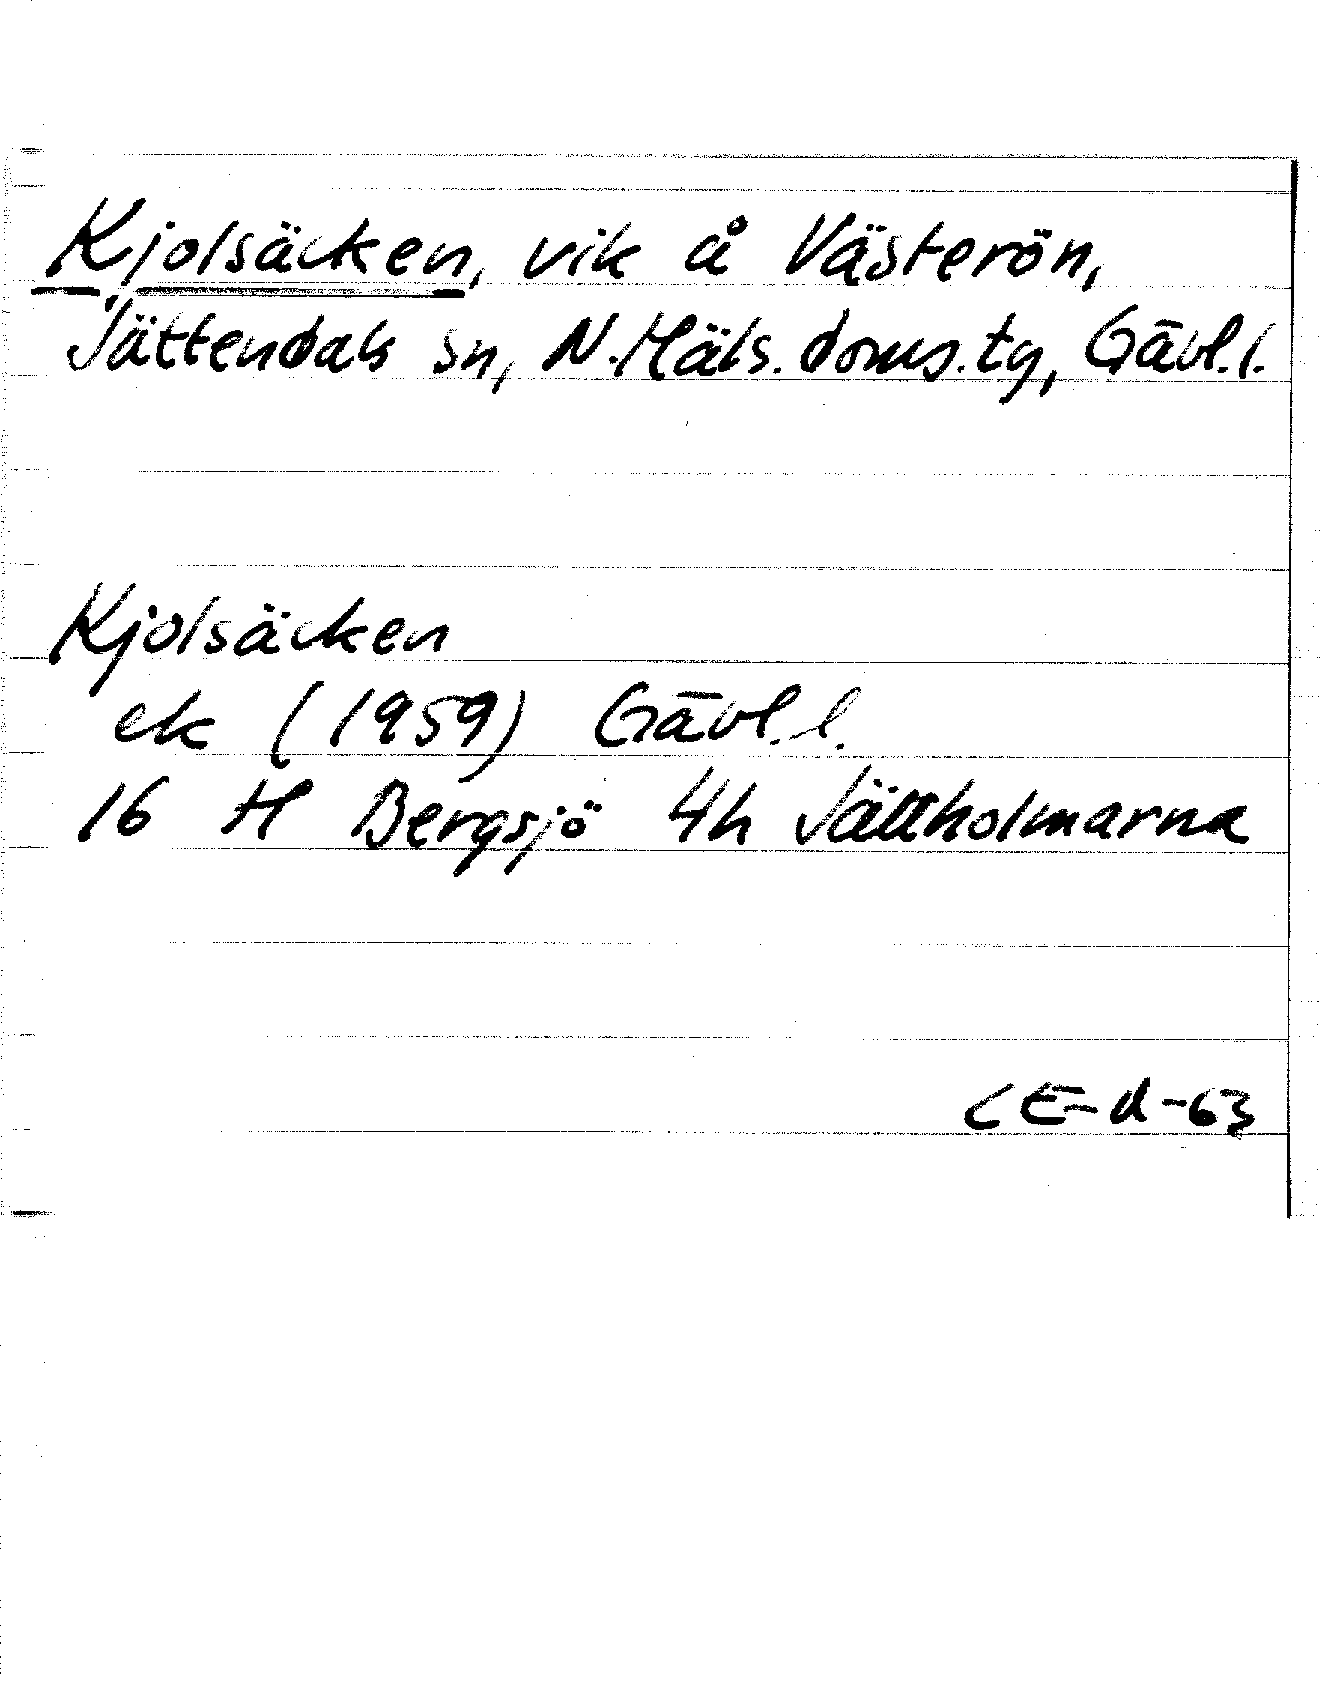 Kjolsäcken, vik å Västerön,
Jättendals sn, N.Häls.doms.tg, Gävl.l.
Kjolsäcken
ek (1959) Gävl.l.
16 H Bergsjö 4h Jättholmarna
CE-d-63